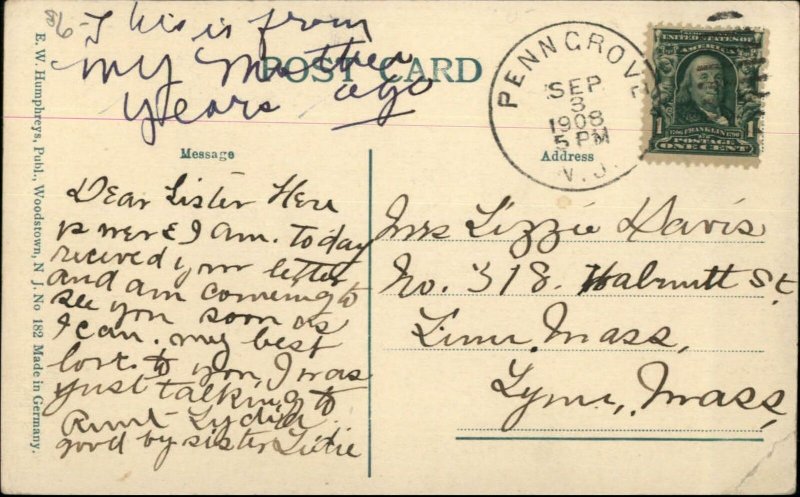 86
This is from
my Mother
years ago
POST CARD
PENNGROVE
SEP
3
1908
5 PM
N.J.
UNITED STATES OF
AMERICA
1 1706 FRANKLIN 1790 1
POSTAGE
ONE CENT
Message
Address
Dear Sister Here
is were I am. today
recieved your letter
and am comeing to
see you soon as
I can. my best
love to you, I was
just talking to
Aunt Lydia.
good by sister
Mrs Lizzie Davis
No. 318. Walnutt St.
Linn, Mass,
Lynn, Mass,
E. W. Humphreys, Publ., Woodstown, N. J. No 182 Made in Germany.